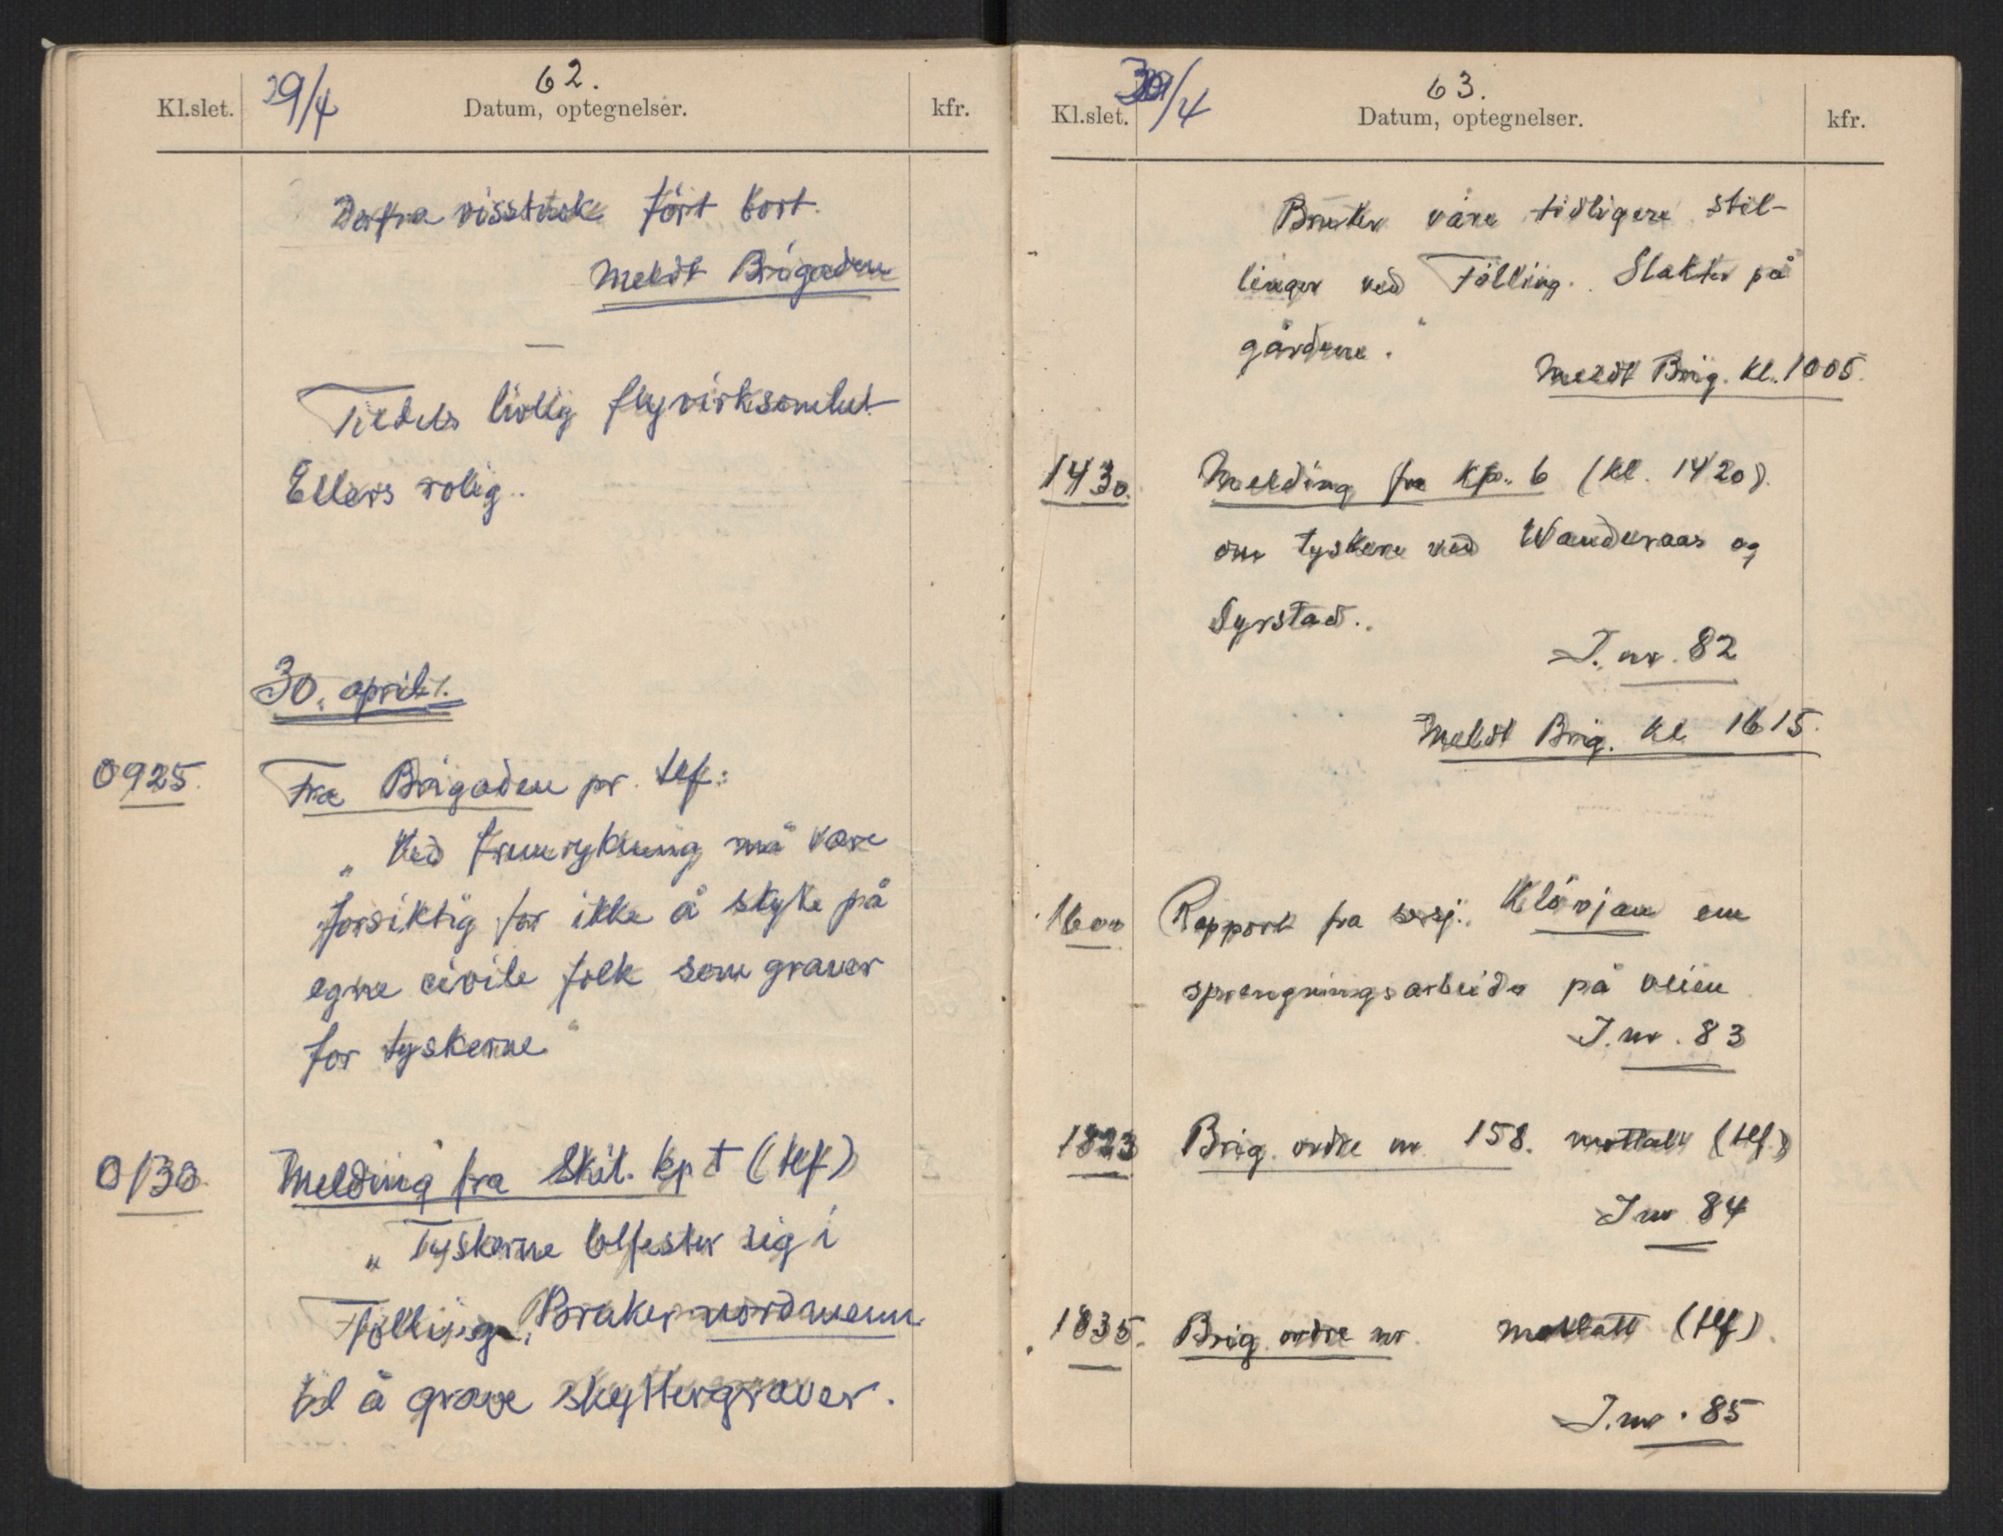 62.
Kl.slet. 29/4 Datum, optegnelser. kfr.
Derfra visstnok ført bort.
Meldt Brigaden
—
Tildels livlig flyvirksomhet
Ellers rolig.
30. april.
0925. Fra Brigaden pr. tlf:
„ Ved fremrykning må være
forsiktig for ikke å skyte på
egne civile folk som graver
for tyskerne"
0130. Melding fra Skil. kp t (tlf)
„ Tyskerne befester sig i
Følling, Bruker nordmenn
til å grave skyttergraver.
63.
Kl.slet. 30/4 Datum, optegnelser. kfr.
Bruker våre tidligere stil-
linger ved Følling. Slakter på
gårdene."
Meldt Brig. kl. 1005.
1430. Melding fra kp. 6 (kl. 1420).
om tyskere ved Wanderaas og
Dyrstad.
J. nr. 82
Meldt Brig. kl 1615.
1600 Rapport fra sersj. Kløvjan om
sprengningsarbeide på veien
J. nr. 83
1823 Brig. ordre nr 158. mottatt (tlf.)
J nr 84
1835. Brig. ordre nr mottatt (tlf).
J. nr. 85